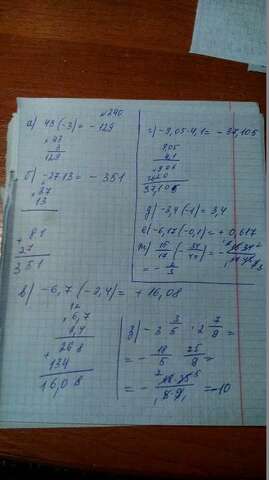 №240
а) 43(-3) = -129
× 43
3
129
б) -27·13 = -351
× 27
13
+ 81
27
351
в) -6,7(-2,4) = +16,08
× 6,7
2,4
+ 268
134
16,08
-9,05·4,1 = -37,105
9,05
4,1
905
3620
37,105
д) -3,4(-1) = 3,4
е) -6,17(-0,1) = +0,617
= - 2/3
з) -3 3/5 · 2 7/9 =
= - 18/5 · 25/9 =
= -10